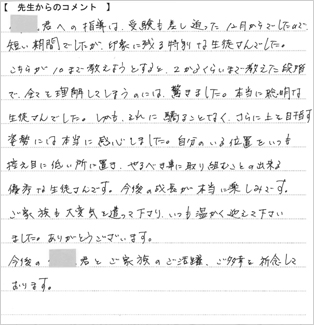 【 先生からのコメント 】
君への指導は、受験も差し迫った12月からでしたので、
短い期間でしたが、印象に残る特別な生徒さんでした。
こちらが10まで教えようとすると、2から3くらいまで教えた段階
で、全てを理解してしまうのには、驚きました。本当に聡明な
生徒さんでした。しかも、それに驕ることなく、さらに上を目指す
姿勢には本当に感心しました。自分のいる位置をいつも
控え目に低い所に置き、やるべき事に取り組むことの出来る
優秀な生徒さんです。今後の成長が本当に楽しみです。
ご家族も大変気を遣って下さり、いつも温かく迎えて下さい
ました。ありがとうございます。
今後の 君とご家族のご活躍、ご多幸を祈念して
おります。